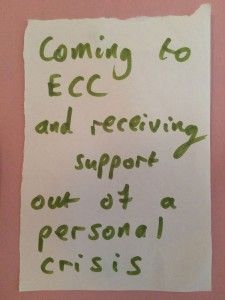 Coming to
ECC
and receiving
support
out of a
personal
crisis